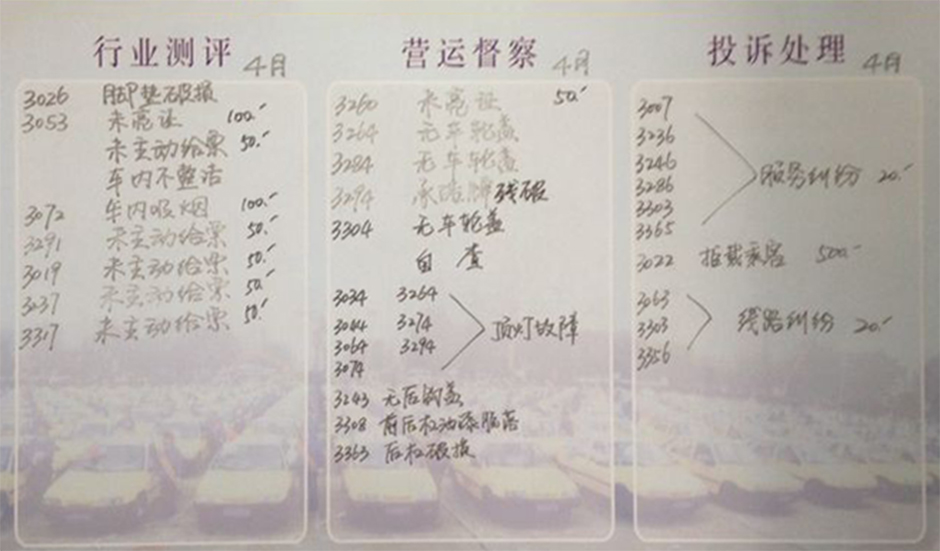 行业测评 4月
3026 脚垫破损
3053 未亮证 100.-
未主动给票 50.-
车内不整洁
3072 车内吸烟 100.-
3291 未主动给票 50.-
3019 未主动给票 50.-
3037 未主动给票 50.-
3317 未主动给票 50.-
营运督察 4月
3260 未亮证 50.-
3264 无车轮盖
3284 无车轮盖
3294 承诺牌残破
3304 无车轮盖
自查
3034 3264
3044 3274
3064 3294
3074
顶灯故障
3243 无后钩盖
3308 前后杠油漆脱落
3363 后杠破损
投诉处理 4月
3007
3236
3246
3286
3303
3365
服务纠纷 20.-
3022 拒载乘客 500.-
3063
3303
3356
线路纠纷 20.-